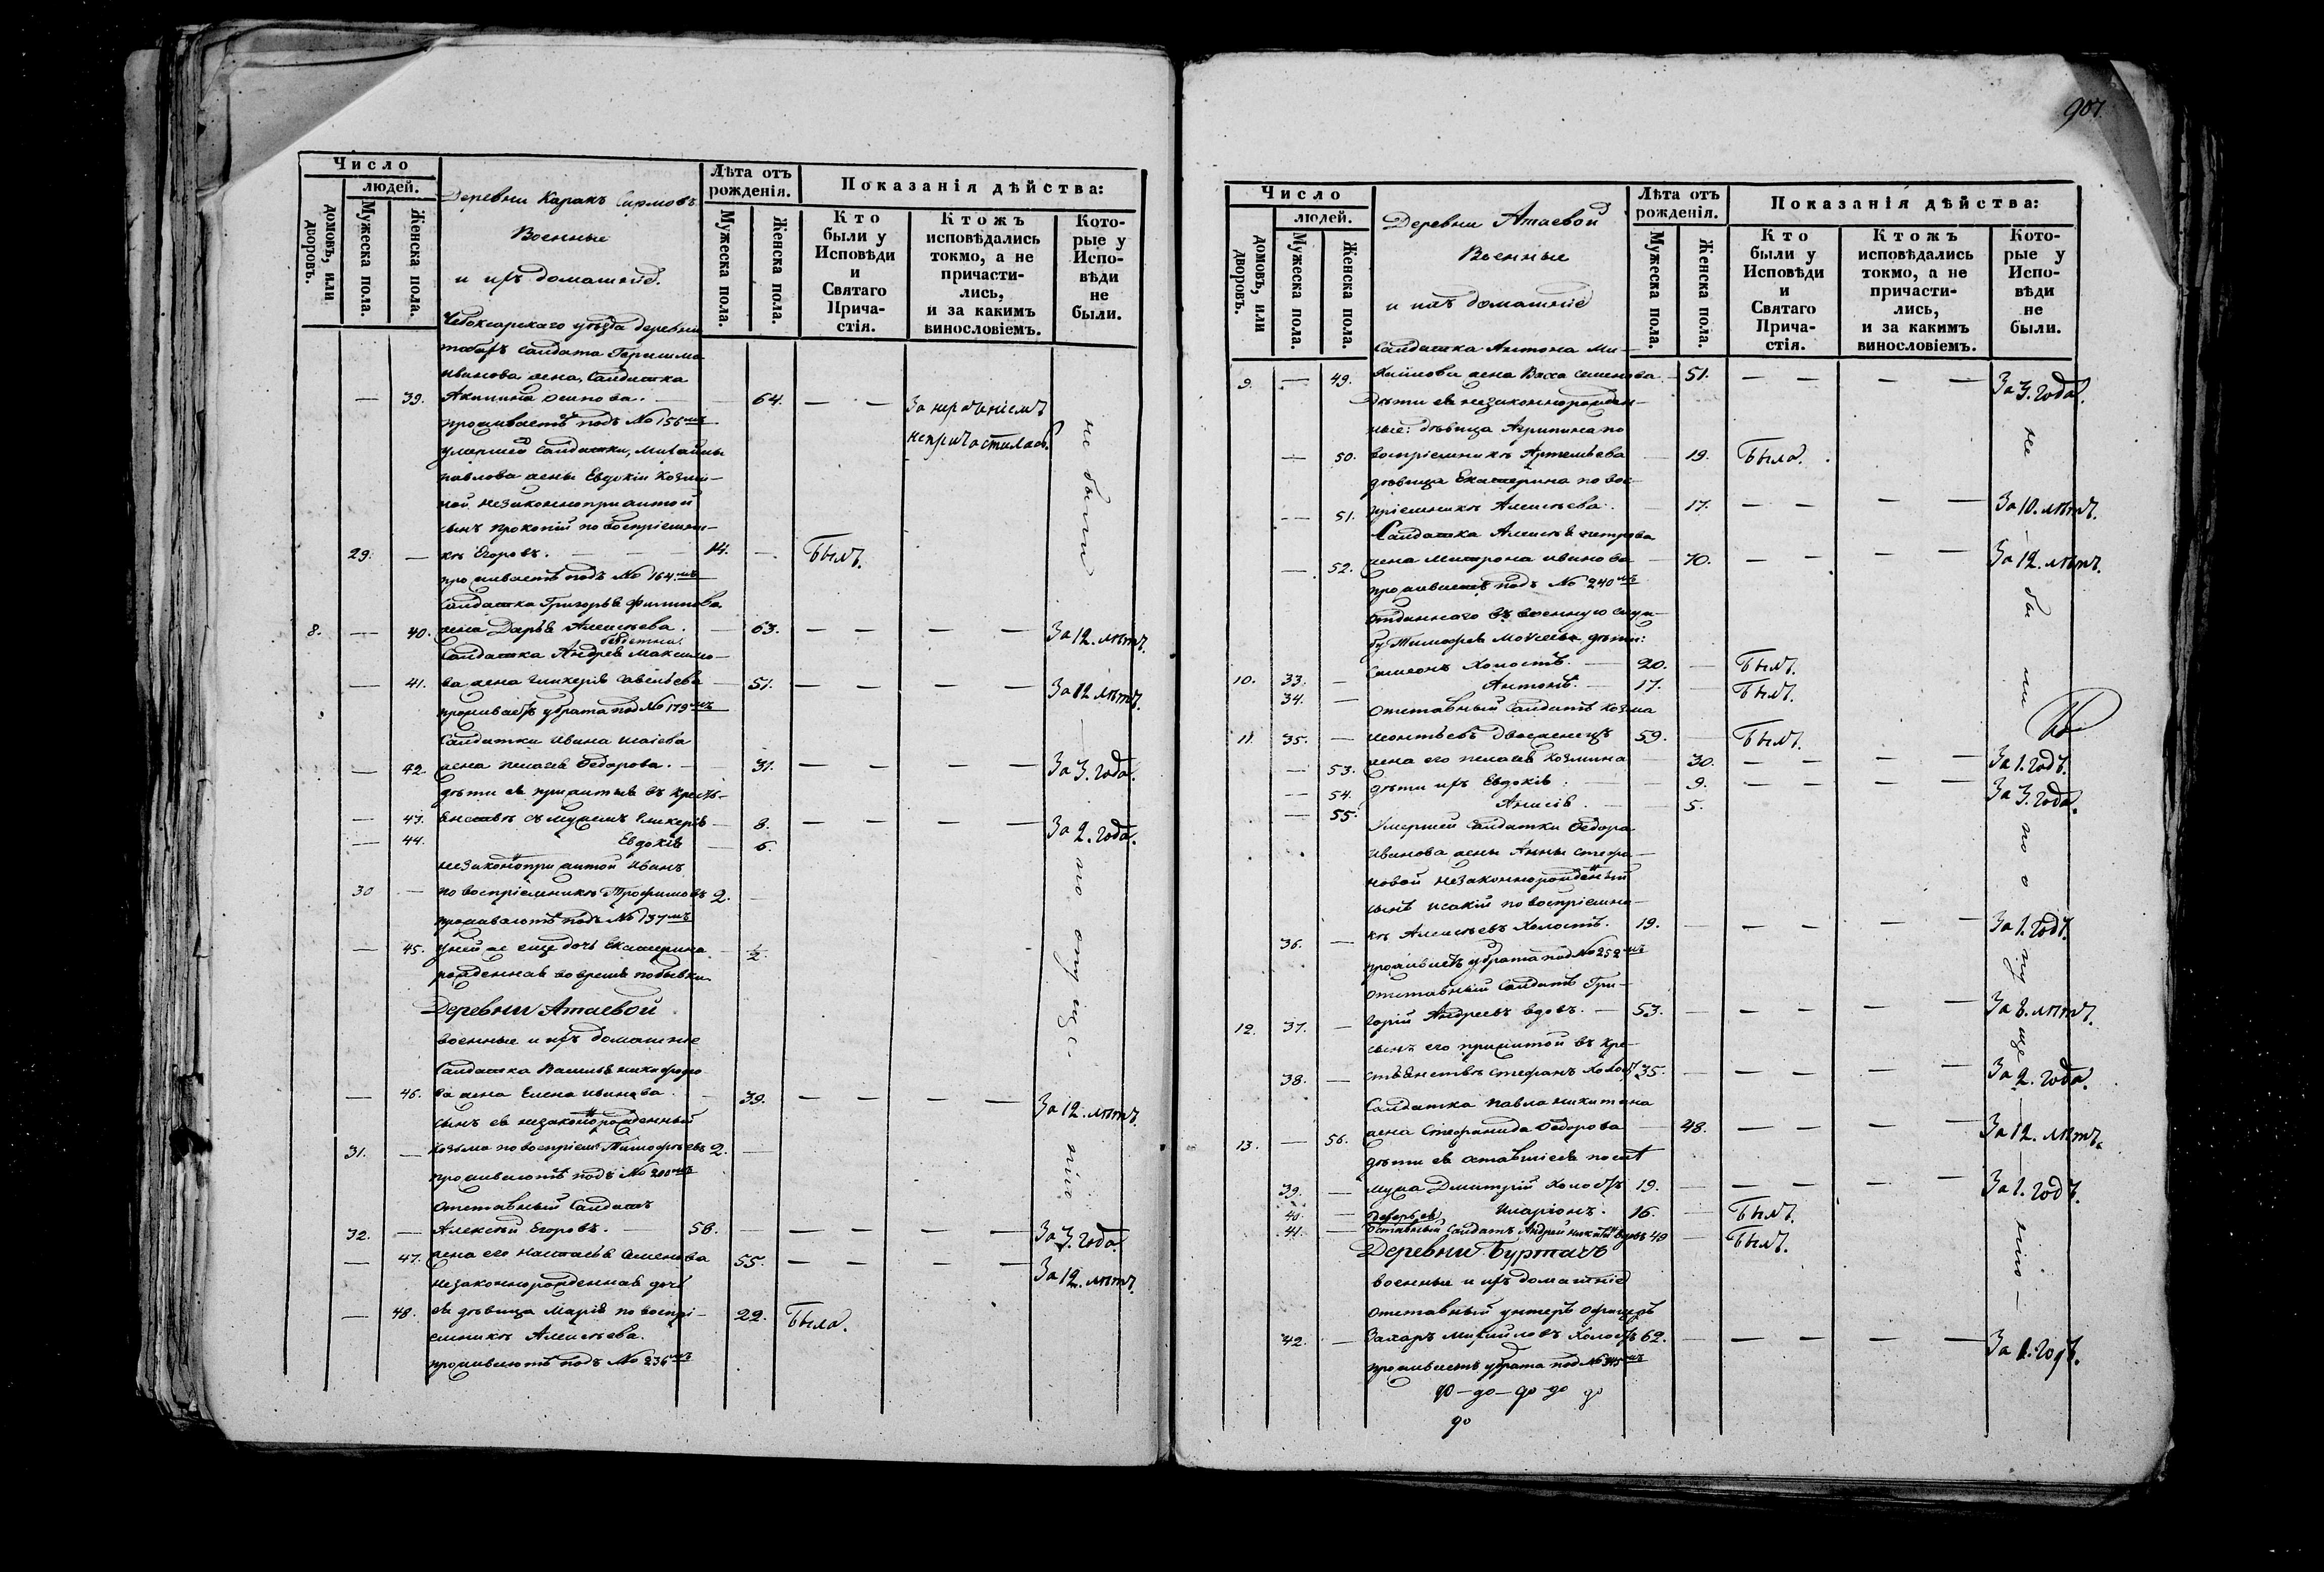 Число
людей.
домовъ, или дворовъ.
Мужеска пола.
Женска пола.
Деревни Каракъ Сирмовъ
Военные
и ихъ домашніе.
Лѣта отъ рожденія.
Мужеска пола.
Женска пола.
Показанія дѣйства:
Кто были у Исповѣди и Святаго Прича-стія.
Ктожъ исповѣдались токмо, а не причасти-лись, и за какимъ винословіемъ.
Кото-рые у Испо-вѣди не были.
Чебоксарскаго уѣзда деревни
солдата Герасима
Иванова жена, Солдатка
— 39. Акилина Осипова. 64. — — За нераченіемъ
проживаетъ подъ № 156мъ непричастилась.
умершей Солдатки, Михайлы
Павлова жены Евдокіи Козми-
ной незаконноприжитой
сынъ Прокопій по воспріемни-
29. — къ Егоровъ. 14. — Былъ.
проживаетъ подъ № 164мъ
Солдатка Григорья Филипова
8. — 40. жена Дарья Алексѣева. — 63. — — — — За 12. лѣтъ.
Солдатка Андрея Максимо-
— 41. ва жена Гликерія Савельева — 51. — — — — За 12 лѣтъ.
проживаетъ у брата под № 179мъ
Солдатки Ивана Исаіева
— 42. жена Пелагея Ѳедорова. — 31. — — — — За 3. года.
дѣти ея прижитыя въ кресть-
— 43. янствѣ съ мужемъ Гликерія — 8. — — — — За 2. года.
— 44. Евдокія — 6.
незаконноприжитой Иванъ
30 — по воспріемнику Трофимовъ 2. —
проживаютъ подъ № 137мъ
— 45. у ней же еще дочь Екатерина — ½.
рожденная во время побывки
Деревни Атаевой
военные и ихъ домашніе
Солдатка Василья Никифоро
— 46. ва жена Елена Иванова. — 39. — — — — За 12. лѣтъ.
сынъ ея незаконнорожденный
31. — Козьма по воспріем. Тимофѣевъ 2. —
проживаютъ подъ № 200мъ
Отставный Солдатъ
32. — Алексѣй Егоровъ. 58. — — — — За 3. года.
— 47. жена его Настасья Семенова 55. — — — — За 12. лѣтъ.
незаконнорожденная дочь
— 48. ея дѣвица Марія по воспрі- 22. Была.
емнику Алексѣева.
проживаютъ подъ № 236мъ
не были по опущенію
907.
Число
людей.
домовъ, или дворовъ.
Мужеска пола.
Женска пола.
Деревни Атаевой
Военные
и ихъ домашніе
Лѣта отъ рожденія.
Мужеска пола.
Женска пола.
Показанія дѣйства:
Кто были у Исповѣди и Святаго Прича-стія.
Ктожъ исповѣдались токмо, а не причасти-лись, и за какимъ винословіемъ.
Кото-рые у Испо-вѣди не были.
Солдатка Антона Ми-
9. — 49. хайлова жена Васса Семенова. — 51. — — — — За 3. года.
дѣти ея незаконнорожден-
ные: дѣвица Агрипина по
— 50. воспріемнику Артемьева — 19. Была.
дѣвица Екатерина по вос-
— 51. пріемнику Алексѣева. — 17. — — — — За 10. лѣтъ.
Солдатка Алексѣя Петрова
— 52. жена Матрона Иванова — 70. — — — За 12. лѣтъ.
проживаетъ подъ № 240мъ
Отданнаго въ военную служ-
бу Тимофея Моисеева, дѣти:
10. 33. — Симеонъ Холостъ. — 20. — Былъ.
34. — Антонъ. — 17. — Былъ.
Отставный Солдатъ Козма
11. 35. — Леонтьевъ двоеженецъ 59. — Былъ.
— 53. жена его Пелагея Козмина — 30. — — — — За 1. годъ.
— 54. дѣти ихъ Евдокія — 9. — — — — За 3. года.
— 55. Анисія. — 5.
Умершей Солдатки Ѳедора
Иванова жены Анны Стефа-
новой незаконнорожденный
сынъ Исакій по воспріемни-
36. — къ Алексѣевъ Холостъ. 19. — — — — За 1. годъ.
проживаетъ у брата под № 252мъ
Отставный Солдатъ Гри-
12. 37. — горій Андреевъ вдовъ. — 53. — — — — За 8. лѣтъ.
сынъ его прижитой въ кре-
38. — стьянствѣ Стефанъ Холостъ 35. — — — — За 2. года.
Солдатка Павла Никитина
13. — 56. жена Стефанида Ѳедорова — 48. — — — — За 12. лѣтъ.
дѣти ея оставшіеся послѣ
39. — мужа Дмитрій Холостъ 19. — — — — За 1. годъ.
40. — Иларіонъ. 16. — Былъ.
41. — Отставный Солдатъ Андрей Никитинъ вдовъ 49 — Былъ.
Деревни Буртасъ
военные и ихъ домашніе
Отставный унтеръ Офицеръ
42. — Захаръ Михайловъ Холостъ 62. — — — — За 1. годъ.
проживаетъ у брата под № 345мъ
до — до — до до до
до
не были по опущенію